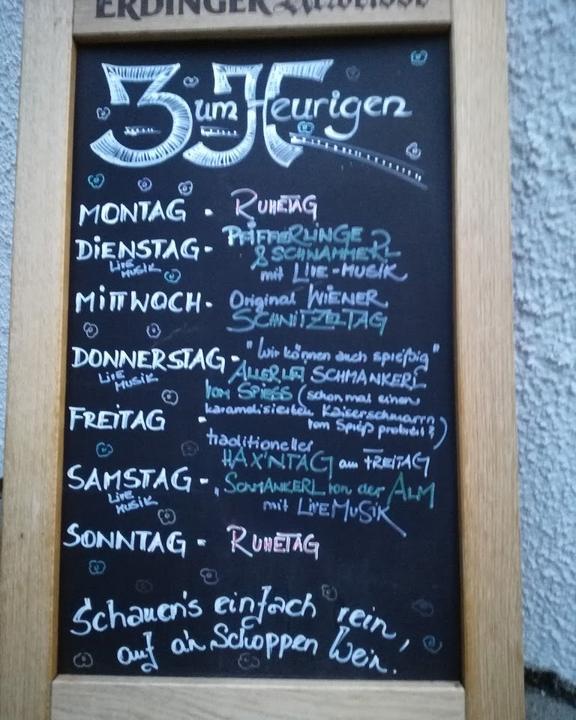 ERDINGER Urweisse
Zum Heurigen
MONTAG - RUHETAG
DIENSTAG - PFIFFERLINGE
LIVE MUSIK & SCHWAMMERL
mit LIVE-MUSIK
MITTWOCH - Original WIENER
SCHNITZELTAG
DONNERSTAG - "Wir können auch spießig"
LIVE MUSIK ALLERLEI SCHMANKERL
vom SPIESS (schon mal einen
karamelisierten Kaiserschmarrn
FREITAG - vom Spieß probiert?)
traditioneller
HAX'NTAG am FREITAG
SAMSTAG - SCHMANKERL von der ALM
LIVE MUSIK mit LIVE MUSIK
SONNTAG - RUHETAG
Schauen's einfach rein,
auf a'n Schoppen Wein.